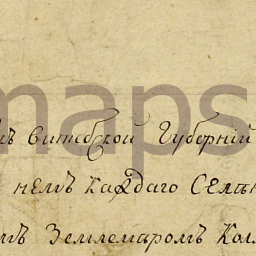 maps
ъ витебской Губерній
немъ каждаго Селен
мъ Землемѣромъ Кол